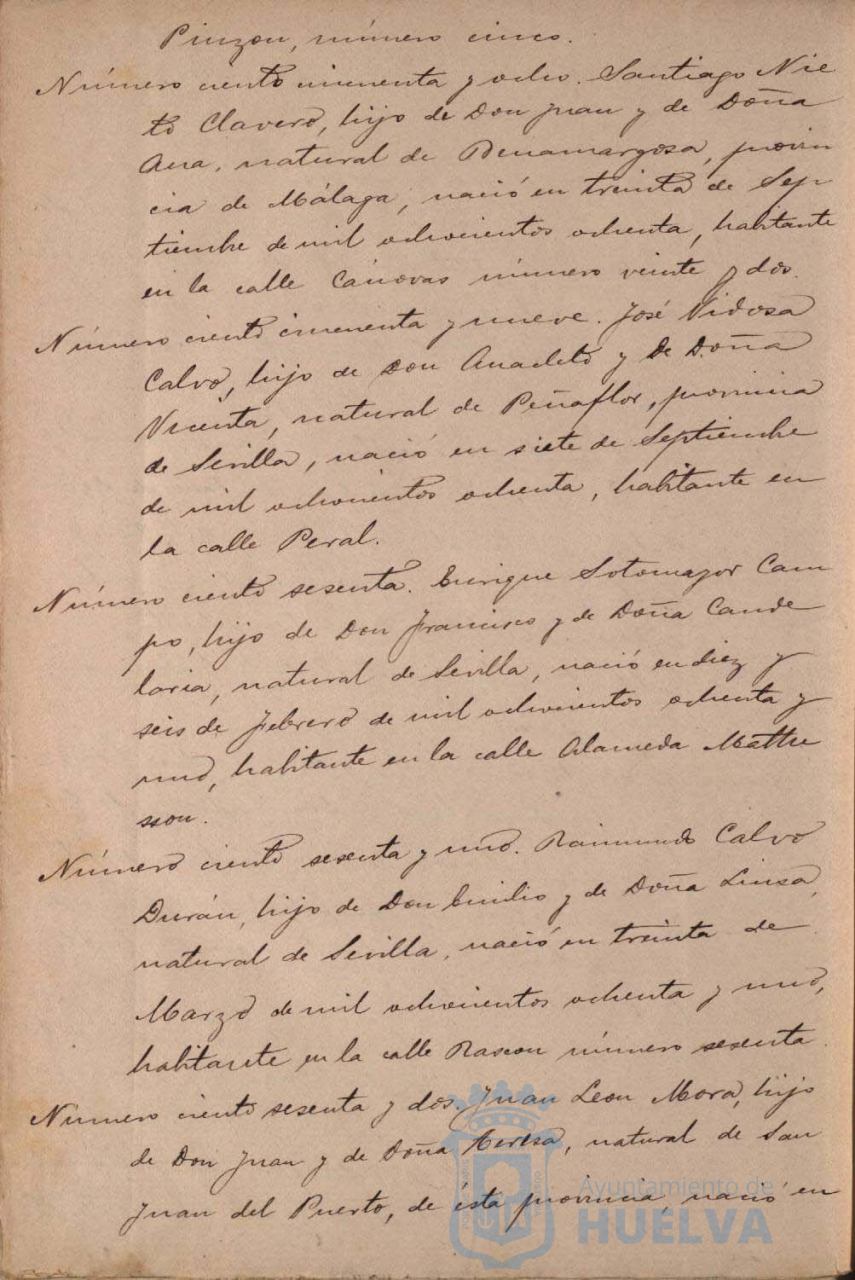 Pinzon, número cinco.
Número ciento cincuenta y ocho. Santiago Nie
to Clavero, hijo de Don Juan y de Doña
Ana, natural de Benamargosa, provin
cia de Málaga, nació en treinta de Sep-
tiembre de mil ochocientos ochenta, habitante
en la calle Cánovas número veinte y dos.
Número ciento cincuenta y nueve. José Vidosa
Calvo, hijo de Don Anacleto y de Doña
Vicenta, natural de Peñaflor, provincia
de Sevilla, nació en siete de Septiembre
de mil ochocientos ochenta, habitante en
la calle Peral.
Número ciento sesenta. Enrique Sotomayor Cam
po, hijo de Don Francisco y de Doña Cande
laria, natural de Sevilla, nació en diez y
seis de Febrero de mil ochocientos ochenta y
uno, habitante en la calle Alameda Mathe
sson.
Número ciento sesenta y uno. Raimundo Calvo
Durán, hijo de Don Emilio y de Doña Luisa,
natural de Sevilla, nació en treinta de
Marzo de mil ochocientos ochenta y uno,
habitante en la calle Rascon número sesenta.
Número ciento sesenta y dos. Juan Leon Mora, hijo
de Don Juan y de Doña Teresa, natural de San
Juan del Puerto, de ésta provincia, nació en
Ayuntamiento de
HUELVA